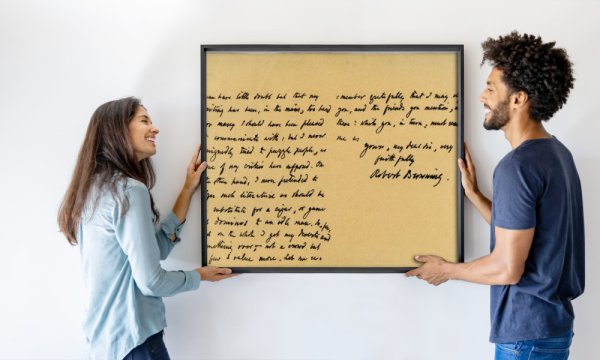 an have little doubt but that my
riting has been, in the main, too hard
r many I should have been pleased
communicate with; but I never
esignedly tried to puzzle people, as
e of my critics have supposed. On
other hand, I never pretended to
fer such literature as should be
substitute for a cigar, or game
dominos to an idle man. So, per
d on the whole I get my deserts and
mething over - not a crowd but
few I value more. Let me re=
=member gratefully that I may
you, and the friends you mention,
these: while you, in turn, must
me as
yours, my dear sir, very
faithfully
Robert Browning.